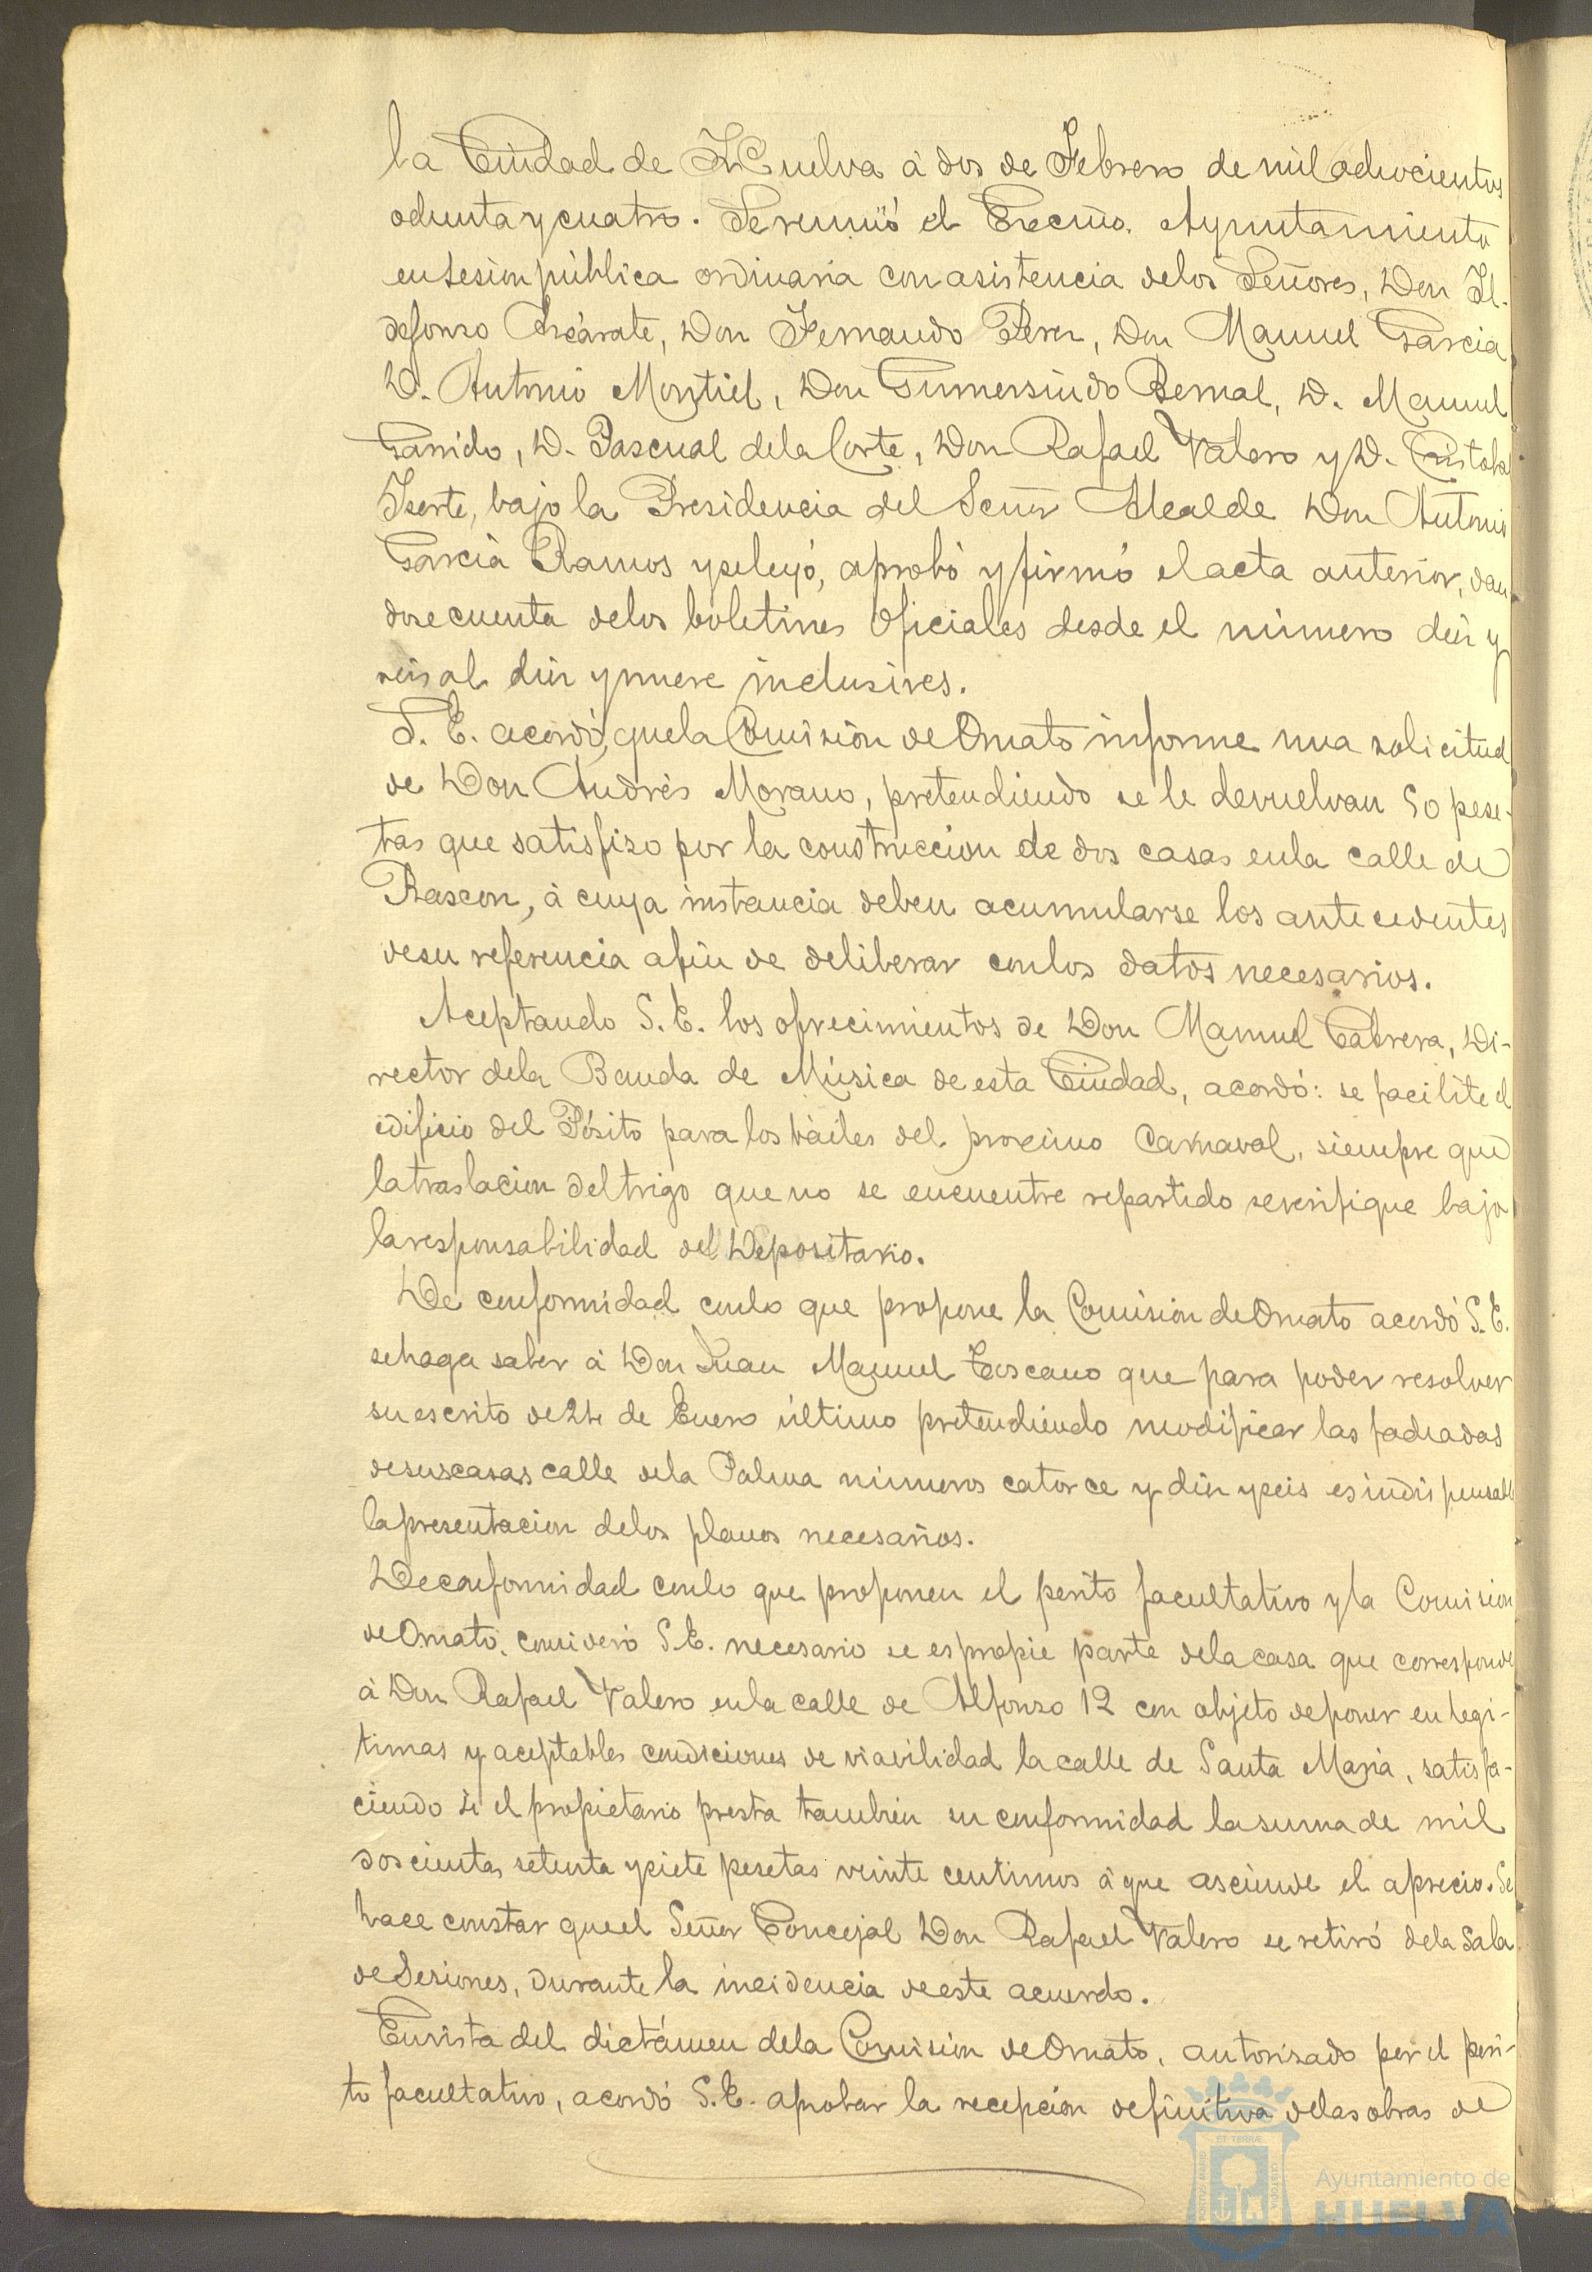 la Ciudad de Huelva á dos de Febrero de mil ochocientos
ochenta y cuatro. Se reunió el Excmo. Ayuntamiento
en sesion pública ordinaria con asistencia de los Señores, Don Il-
defonso Azcárate, Don Fernando Perez, Don Manuel Garcia,
D. Antonio Montiel, Don Gumersindo Bernal, D. Manuel
Garrido, D. Pascual de la Corte, Don Rafael Valero y D. Cristobal
bajo la Presidencia del Señor Alcalde Don Antonio
García Ramos y se leyó, aprobó y firmó el acta anterior, dan
dose cuenta de los boletines Oficiales desde el número diez y
seis al diez y nueve inclusives.
S. E. acordó, que la Comisión de Ornato informe una solicitud
de Don Andrés Morano, pretendiendo se le devuelvan 50 pese-
tas que satisfizo por la construccion de dos casas en la calle de
Rascon, á cuya instancia deben acumularse los antecedentes
de su referencia afin de deliberar con los datos necesarios.
Aceptando S. E. los ofrecimientos de Don Manuel Cabrera, Di-
rector de la Banda de Música de esta Ciudad, acordó: se facilite el
edificio del Pósito para los báiles del proximo Carnaval, siempre que
la traslacion del trigo que no se encuentre repartido se verifique bajo
la responsabilidad del Depositario.
De conformidad con lo que propone la Comision de Ornato acordó S. E.
se haga saber á Don Juan Manuel Toscano que para poder resolver
su escrito de 24 de Enero último pretendiendo modificar las fachadas
de sus casas calle de la Palma números catorce y diez y seis es indispensable
la presentacion de los planos necesarios.
De conformidad con lo que proponen el perito facultativo y la Comision
de Ornato, consideró S. E. necesario se espropie parte de la casa que corresponde
á Don Rafael Valero en la calle de Alfonso 12 con objeto de poner en legi-
timas y aceptables condiciones de viavilidad la calle de Santa Maria, satisfa-
ciendo si el propietario presta tambien su conformidad la suma de mil
doscientas setenta y siete pesetas veinte centimos á que asciende el aprecio. Se
hace constar que el Señor Concejal Don Rafael Valero se retiró de la Sala
de Sesiones, durante la incidencia de este acuerdo.
En vista del dictámen de la Comision de Ornato, autorizado por el peri-
to facultativo, acordó S. E. aprobar la recepción definitiva de las obras de
Ayuntamiento de
HUELVA